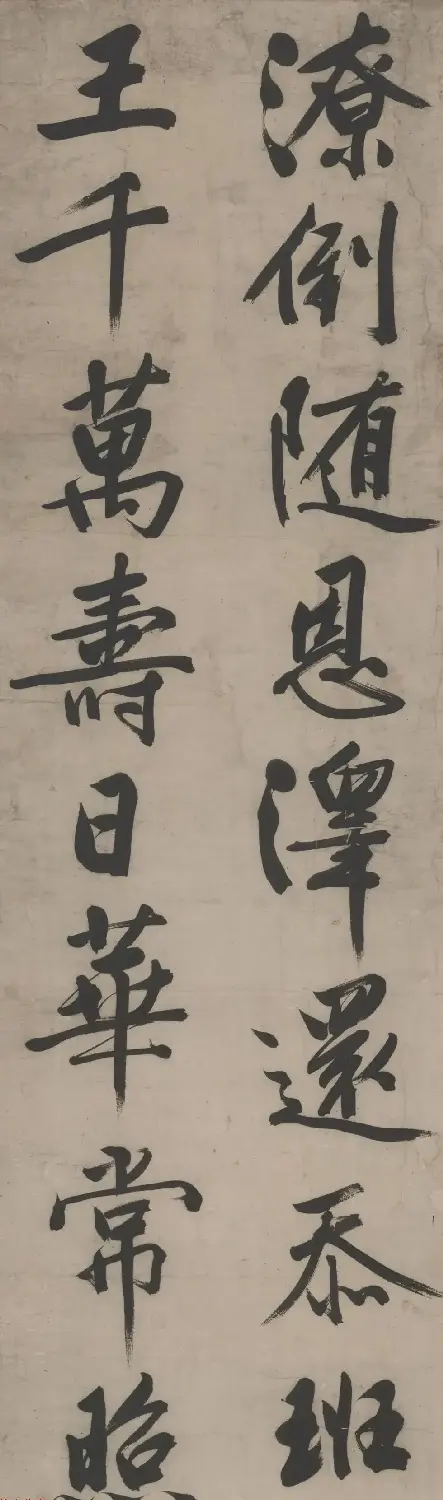 潦倒随恩澤還忝班
王千萬壽日華常昭